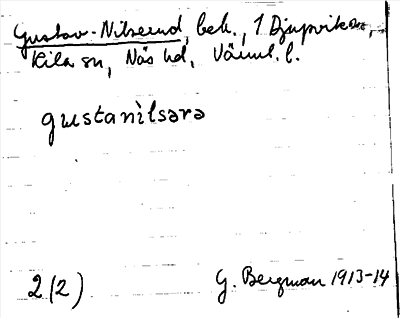 Gustav-Nilserud, beb., 1 Djupviken,
Kila sn, Näs hd, Värml. l.
gustanìlsərə
2(2) G. Bergman 1913-14